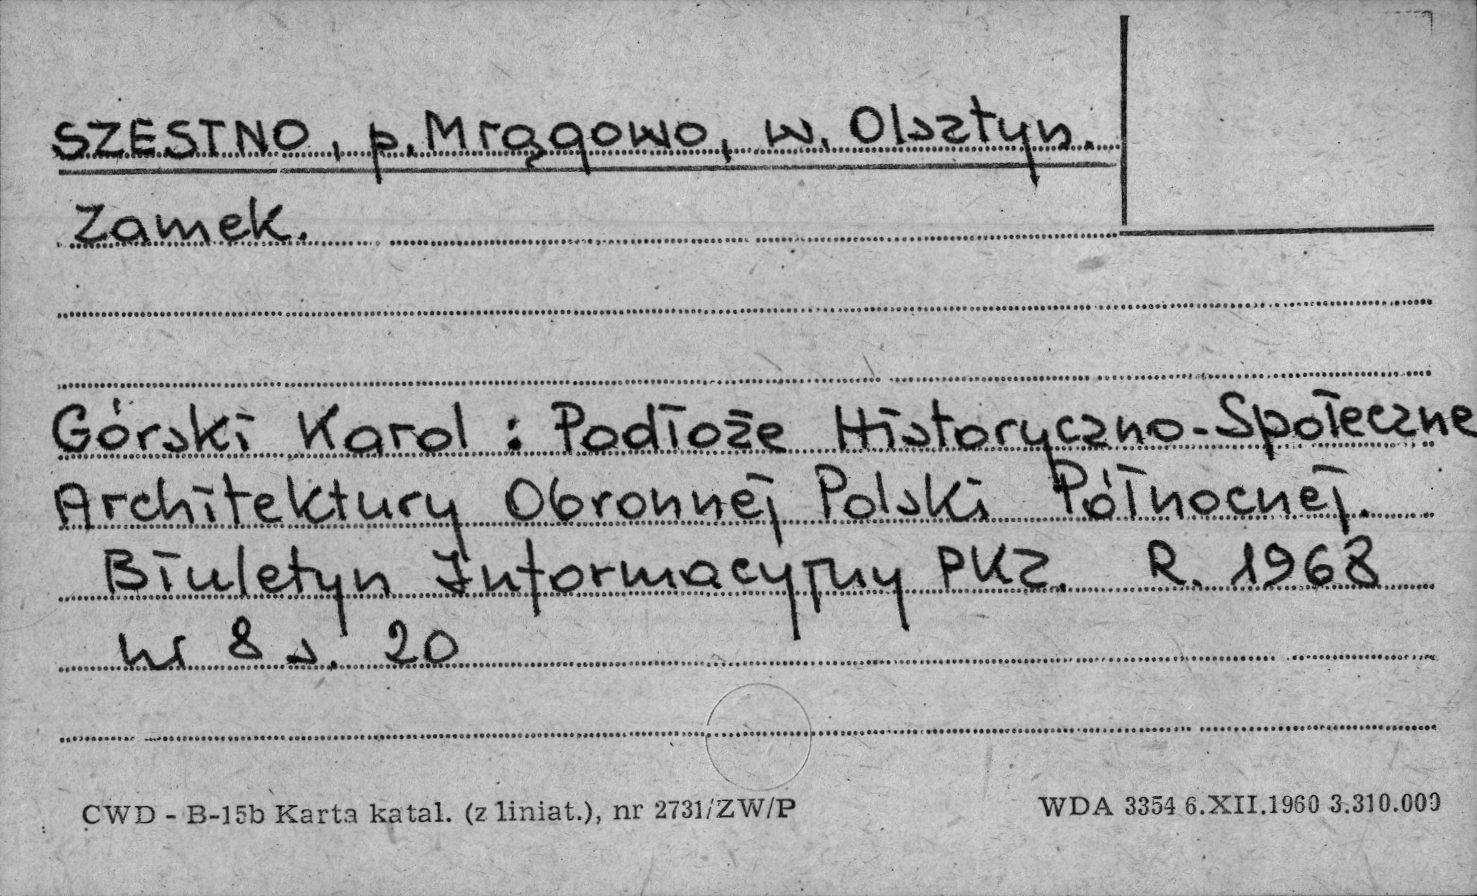 SZESTNO, p. Mrągowo, w. Olsztyn.
Zamek.
Górski Karol : Podłoże Historyczno-Społeczne
Architektury Obronnej Polski Północnej.
Biuletyn Informacyjny PKZ. R. 1968
nr 8 s. 20
CWD - B-15b Karta katal. (z liniat.), nr 2731/ZW/P
WDA 3354 6.XII.1960 3.310.000